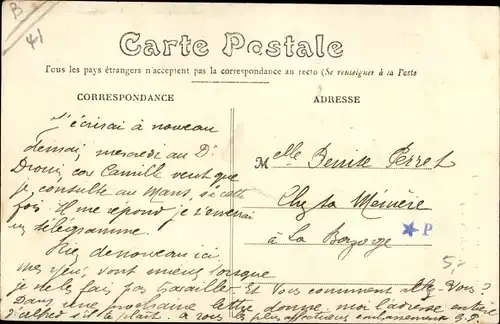 B
41
Carte Postale
Tous les pays étrangers n'acceptent pas la correspondance au recto (Se renseigner à la Poste
CORRESPONDANCE
ADRESSE
J'écrirai à nouveau
demain, mercredi au Dr
Drouin, car Camille veut que
je consulte au Mans, si cette
fois il me répond je t'enverrai
un télégramme.
Rien de nouveau ici,
mes yeux vont mieux lorsque
je ne le fais pas travailler. Et Vous comment allez-Vous?
Dans une prochaine lettre donne-moi l'adresse
d'Alfred s'il te plait. à vous les plus affectueux embrassements G.P.
Melle Denise Perret
Chez sa Mémère
à La Bazoge
P
5,-